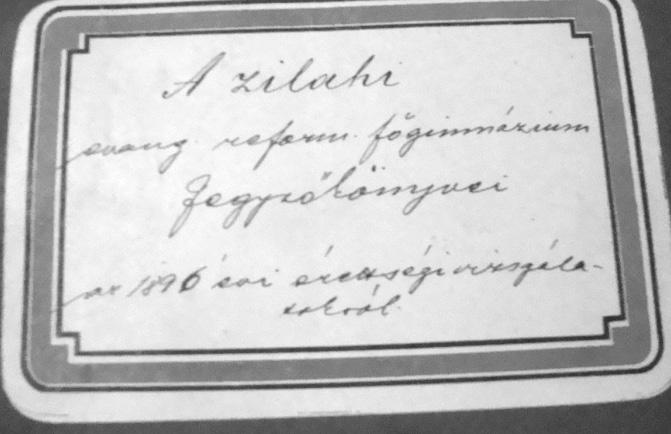 A zilahi
evang. reform. főgimnázium
Jegyzőkönyvei
az 1896 évi érettségi vizsgála-
tokról.